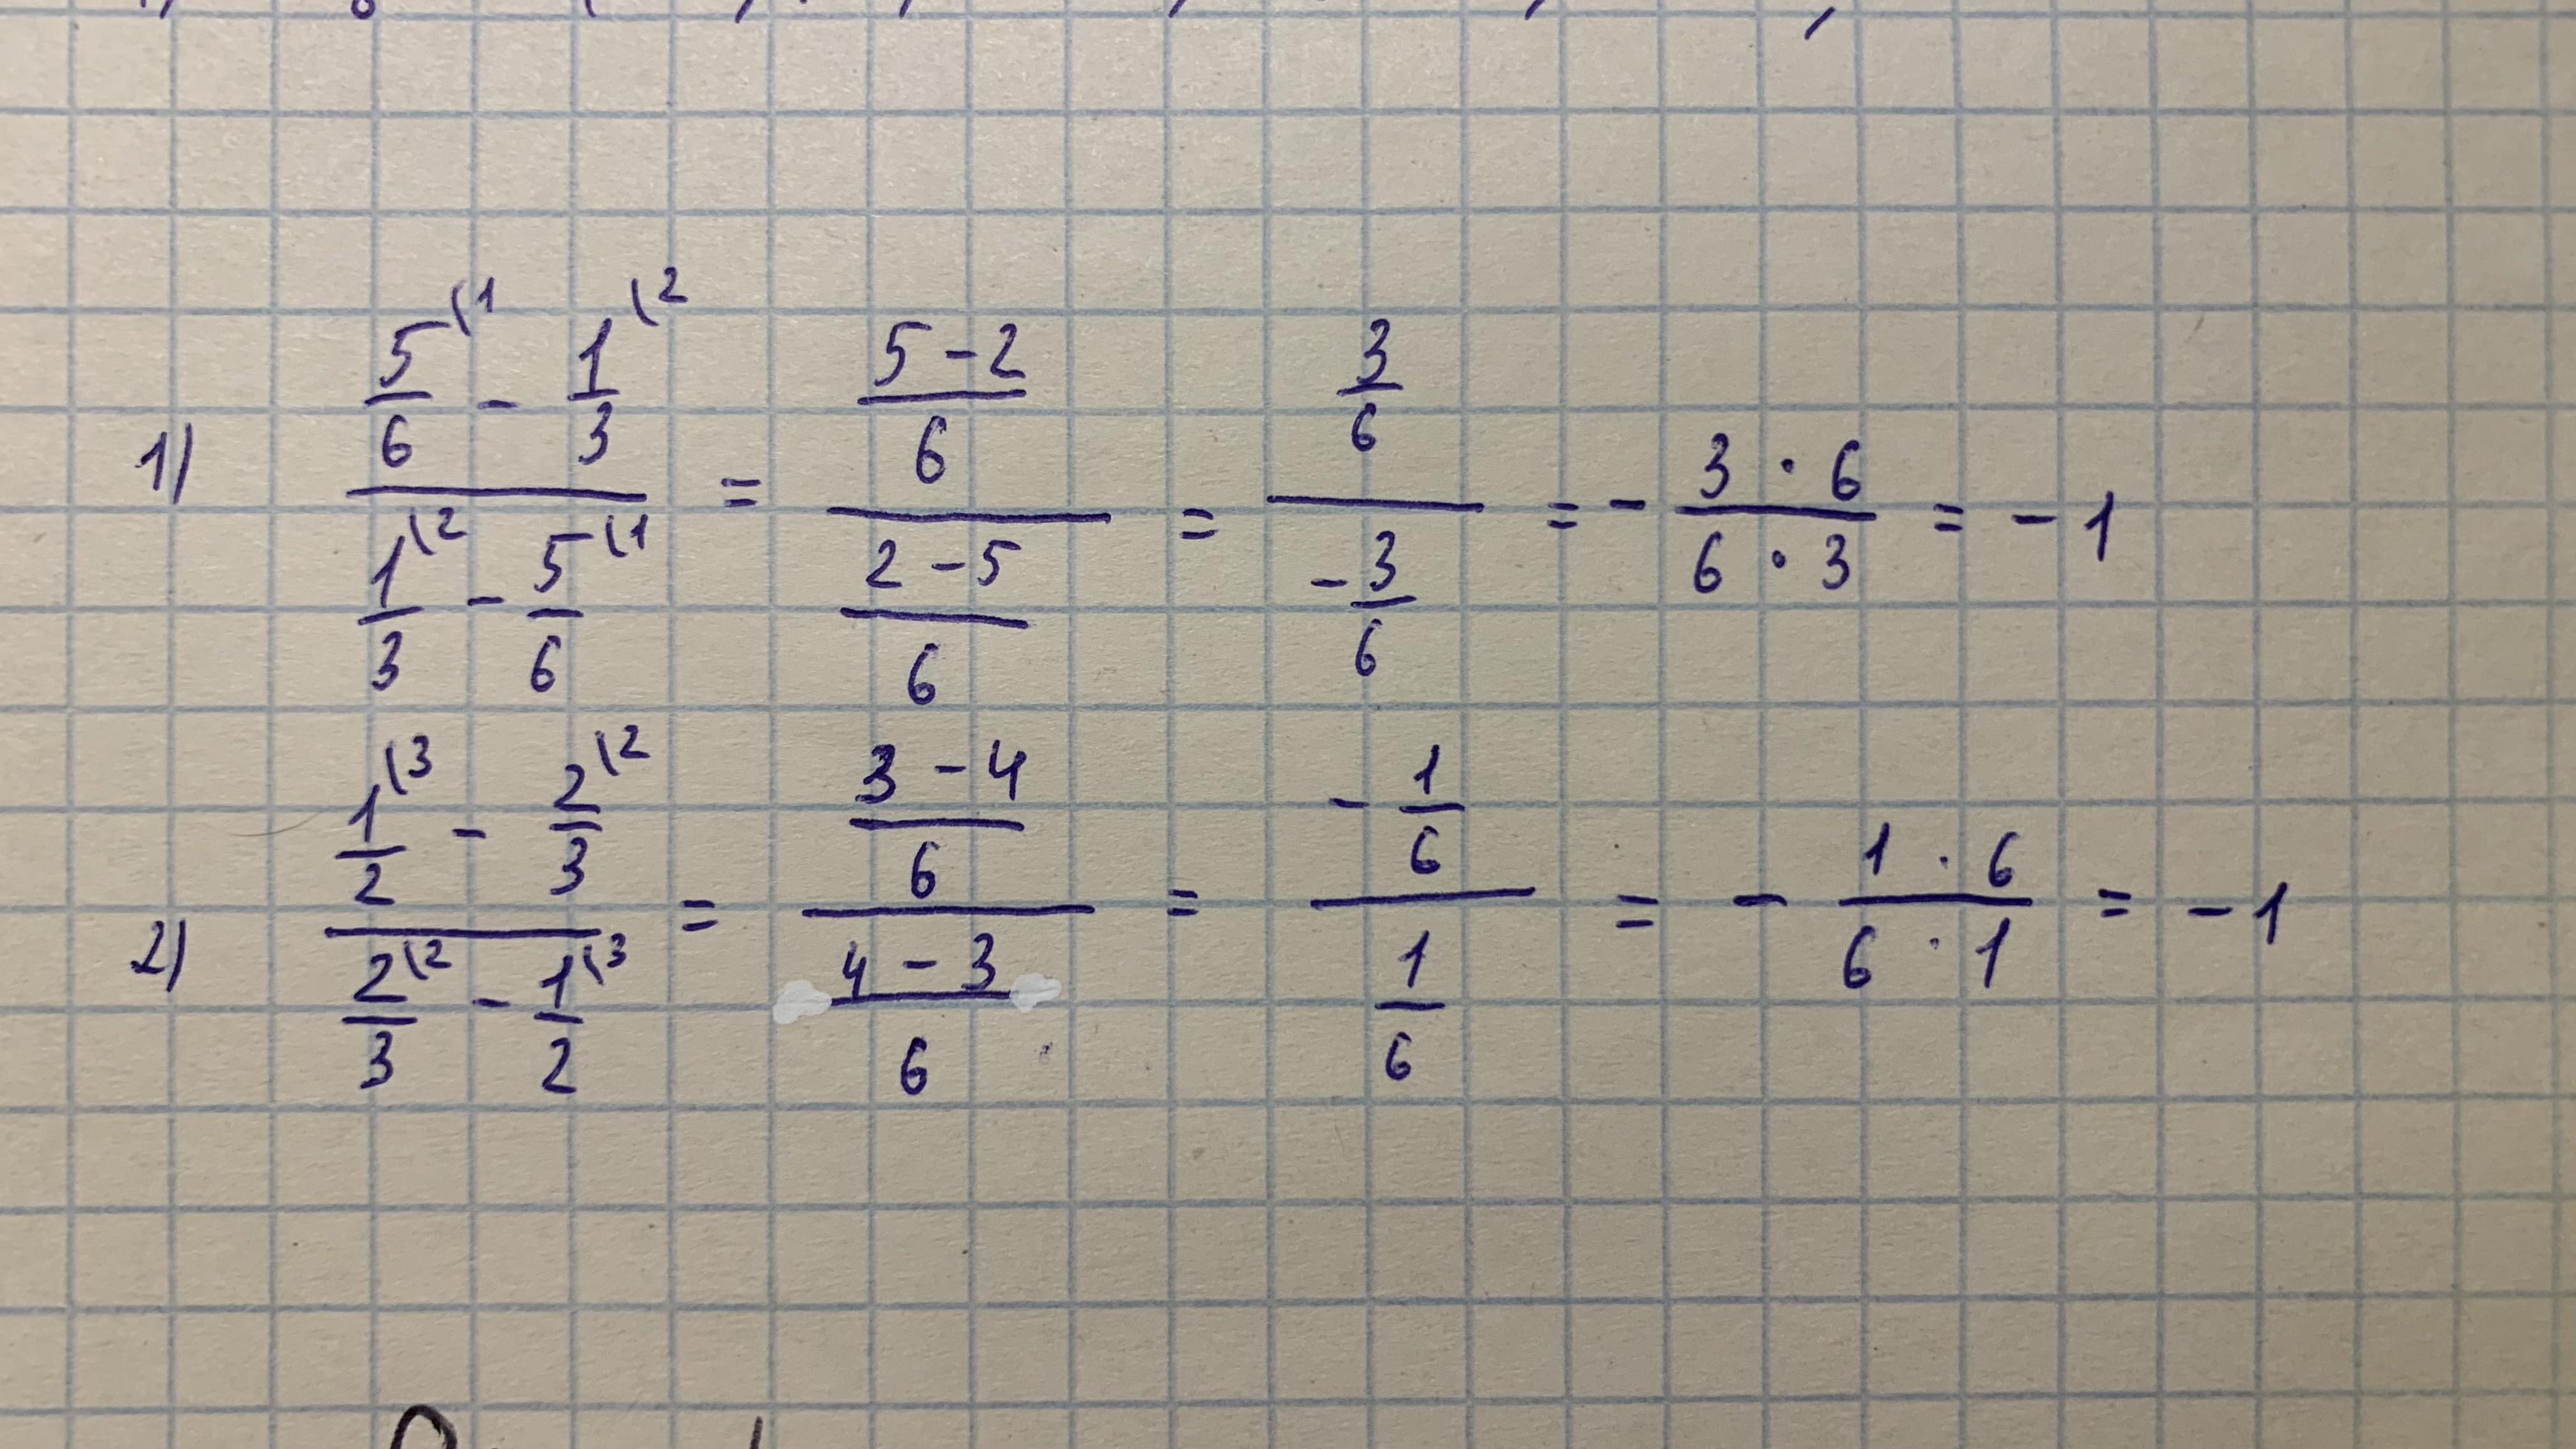 1) (5/6^(1 - 1/3^(2)/(1/3^(2 - 5/6^(1) = ((5-2)/6)/((2-5)/6) = (3/6)/(-3/6) = - (3 · 6)/(6 · 3) = - 1
2) (1/2^(3 - 2/3^(2)/(2/3^(2 - 1/2^(3) = ((3-4)/6)/((4-3)/6) = (-1/6)/(1/6) = - (1 · 6)/(6 · 1) = - 1